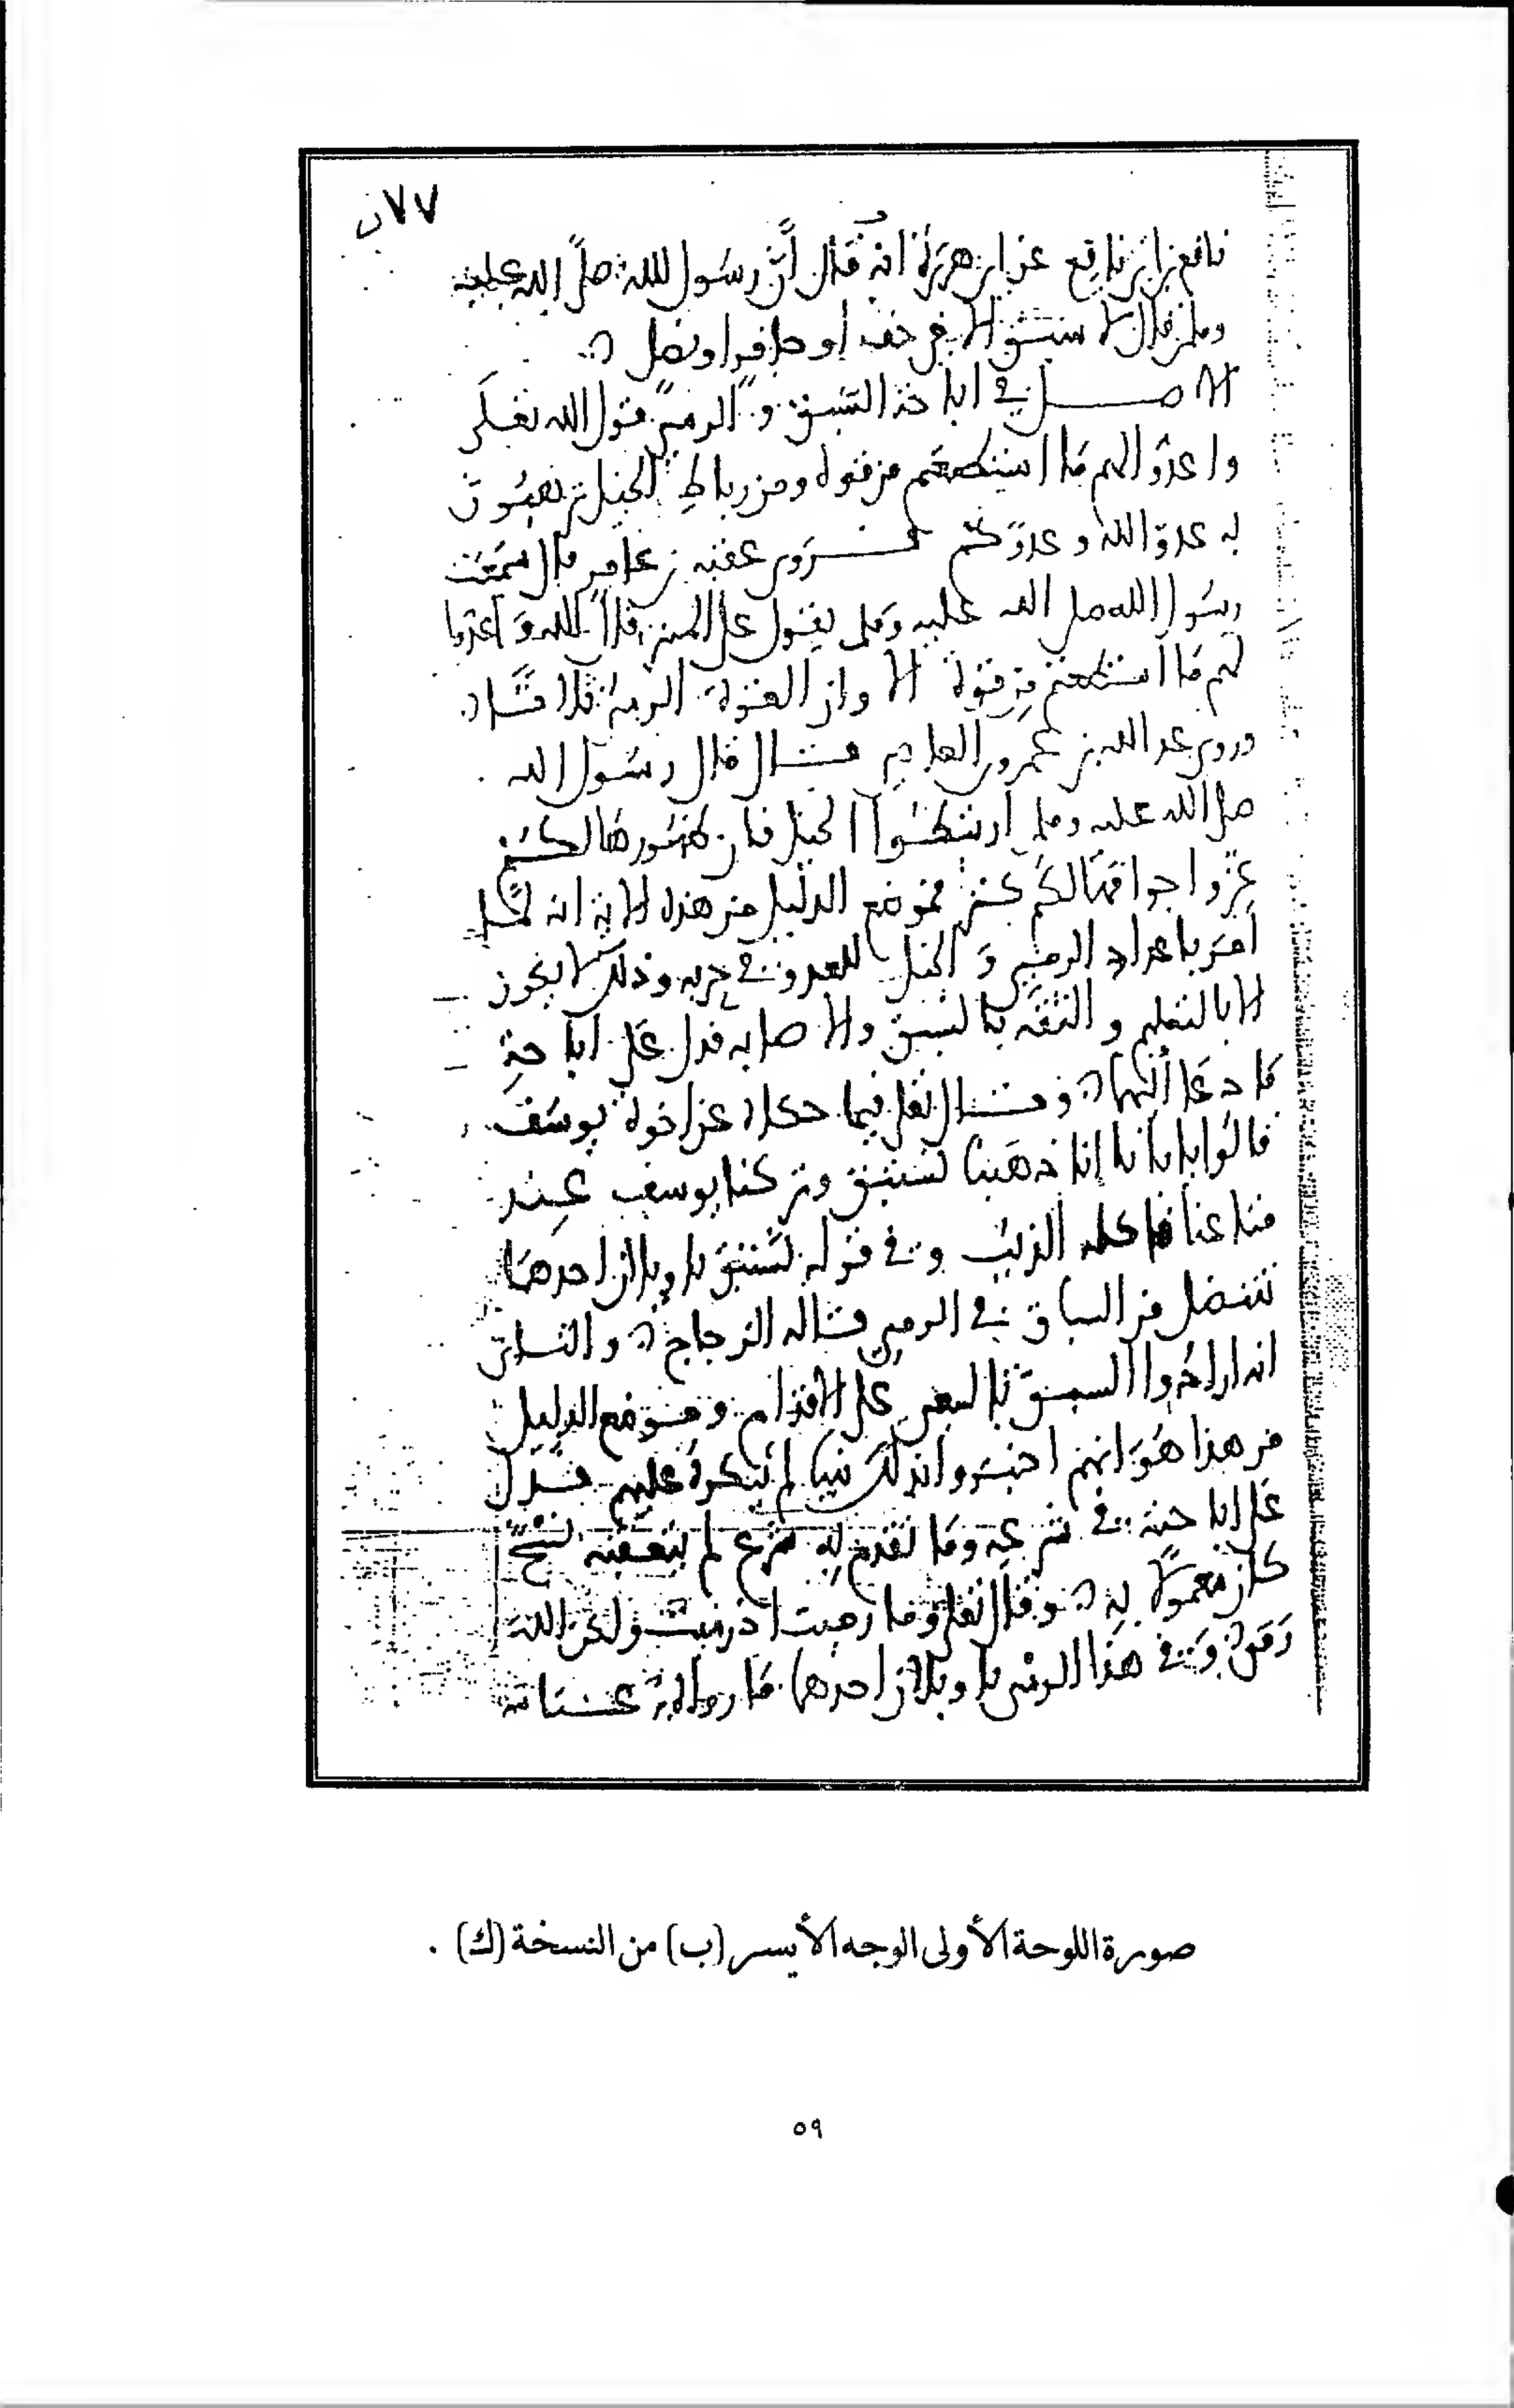 ٧٧ ب
نافع بن أبي نافع عن أبي هريرة أنه قال أن رسول الله صلى الله عليه
وسلم قال لا سبق الا في خف او حافر او نصل
الاصل في اباحة السبق و الرمي قول الله تعالى
واعدوا لهم ما استطعتم من قوة ومن رباط الخيل ترهبون
به عدو الله و عدوكم وروى عقبة بن عامر قال سمعت
رسول الله صلى الله عليه وسلم يقول على المنبر قال الله واعدوا
لهم ما استطعتم من قوة الا وان القوة الرمي ثلاثا
وروى عبد الله بن عمرو بن العاص قال قال رسول الله
صلى الله عليه وسلم ارتبطوا الخيل فان ظهورها لكم
عز واجوافها لكم كنز فموضع الدليل من هذه الاية انه لما
أمر باعداد الرمي و الخيل للعدو في حربه وذلك لا يجوز
الا بالتعلم و الثقة بالسبق والاصابه فدل على اباحة
ما دعا اليهما و قال تعالى فيما حكاه عن اخوة يوسف
قالوا يا ابانا انا ذهبنا نستبق وتركنا يوسف عند
متاعنا فاكله الذيب و في قوله نستبق تاويلان احدهما
ننتضل من السباق في الرمي قاله الزجاج و الثاني
انه ارادوا السبق بالسعي على الاقدام وموضع الدليل
من هذا هو انهم اخبروا بذلك نبيا لم ينكره عليهم فدل
على اباحته في شرعه وما تقدم به شرع لم يتعقبه نسخ
كان معمولا به و قال تعالى وما رميت اذ رميت ولكن الله
رمى و في هذا الرمي تاويلان احدهما ما رواه
صورة اللوحة الأولى الوجه الأيسر (ب) من النسخة (ك) .
٥٩